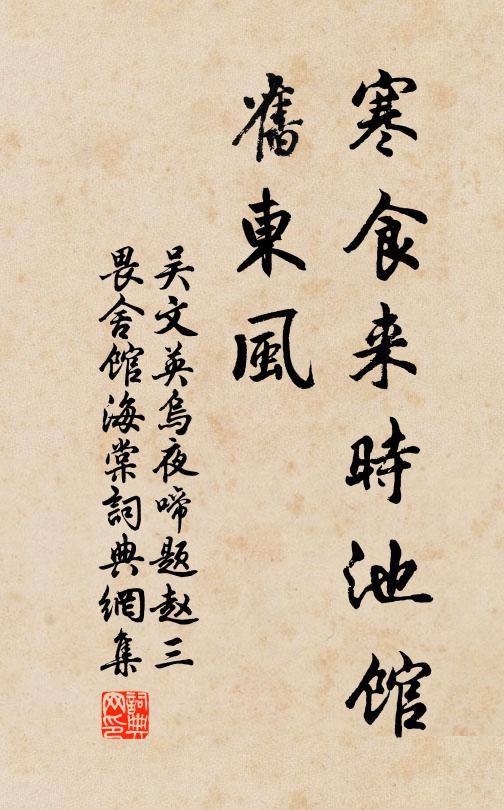 寒食来時池館
舊東風
吴文英烏夜啼題赵三
畏舍館海棠詞典網集
詞典网印